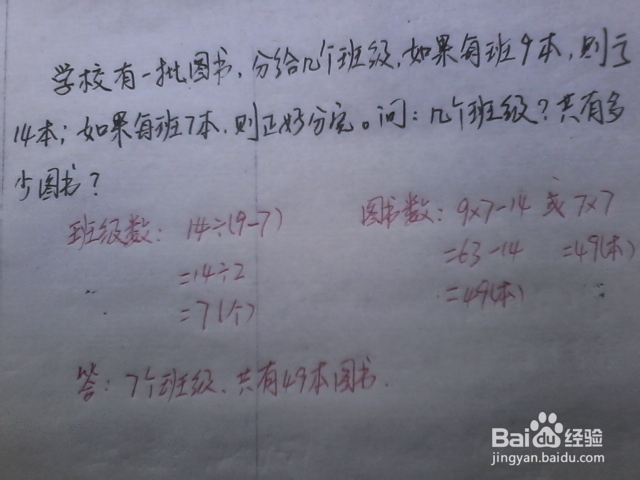 学校有一批图书，分给几个班级，如果每班9本，则亏
14本；如果每班7本，则正好分完。问：几个班级？共有多
少图书？
班级数：14÷(9-7)
=14÷2
=7(个)
图书数：9×7-14 或 7×7
=63-14 =49(本)
=49(本)
答：7个班级，共有49本图书.
Bai du 经验
jingyan.baidu.com